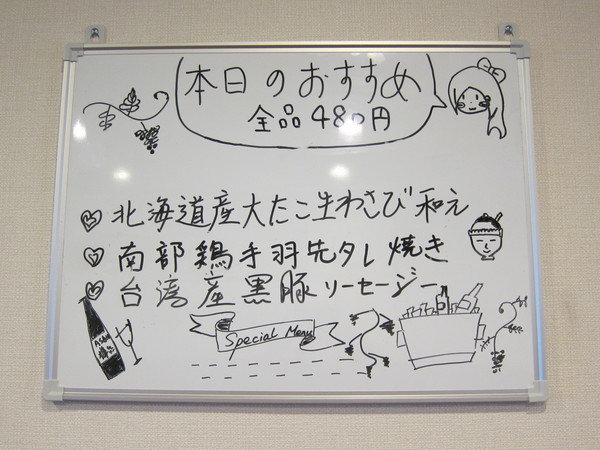 本日のおすすめ
全品480円
北海道産大たこ生わさび和え
南部鶏手羽先タレ焼き
台湾産黒豚ソーセージ
Special Menu